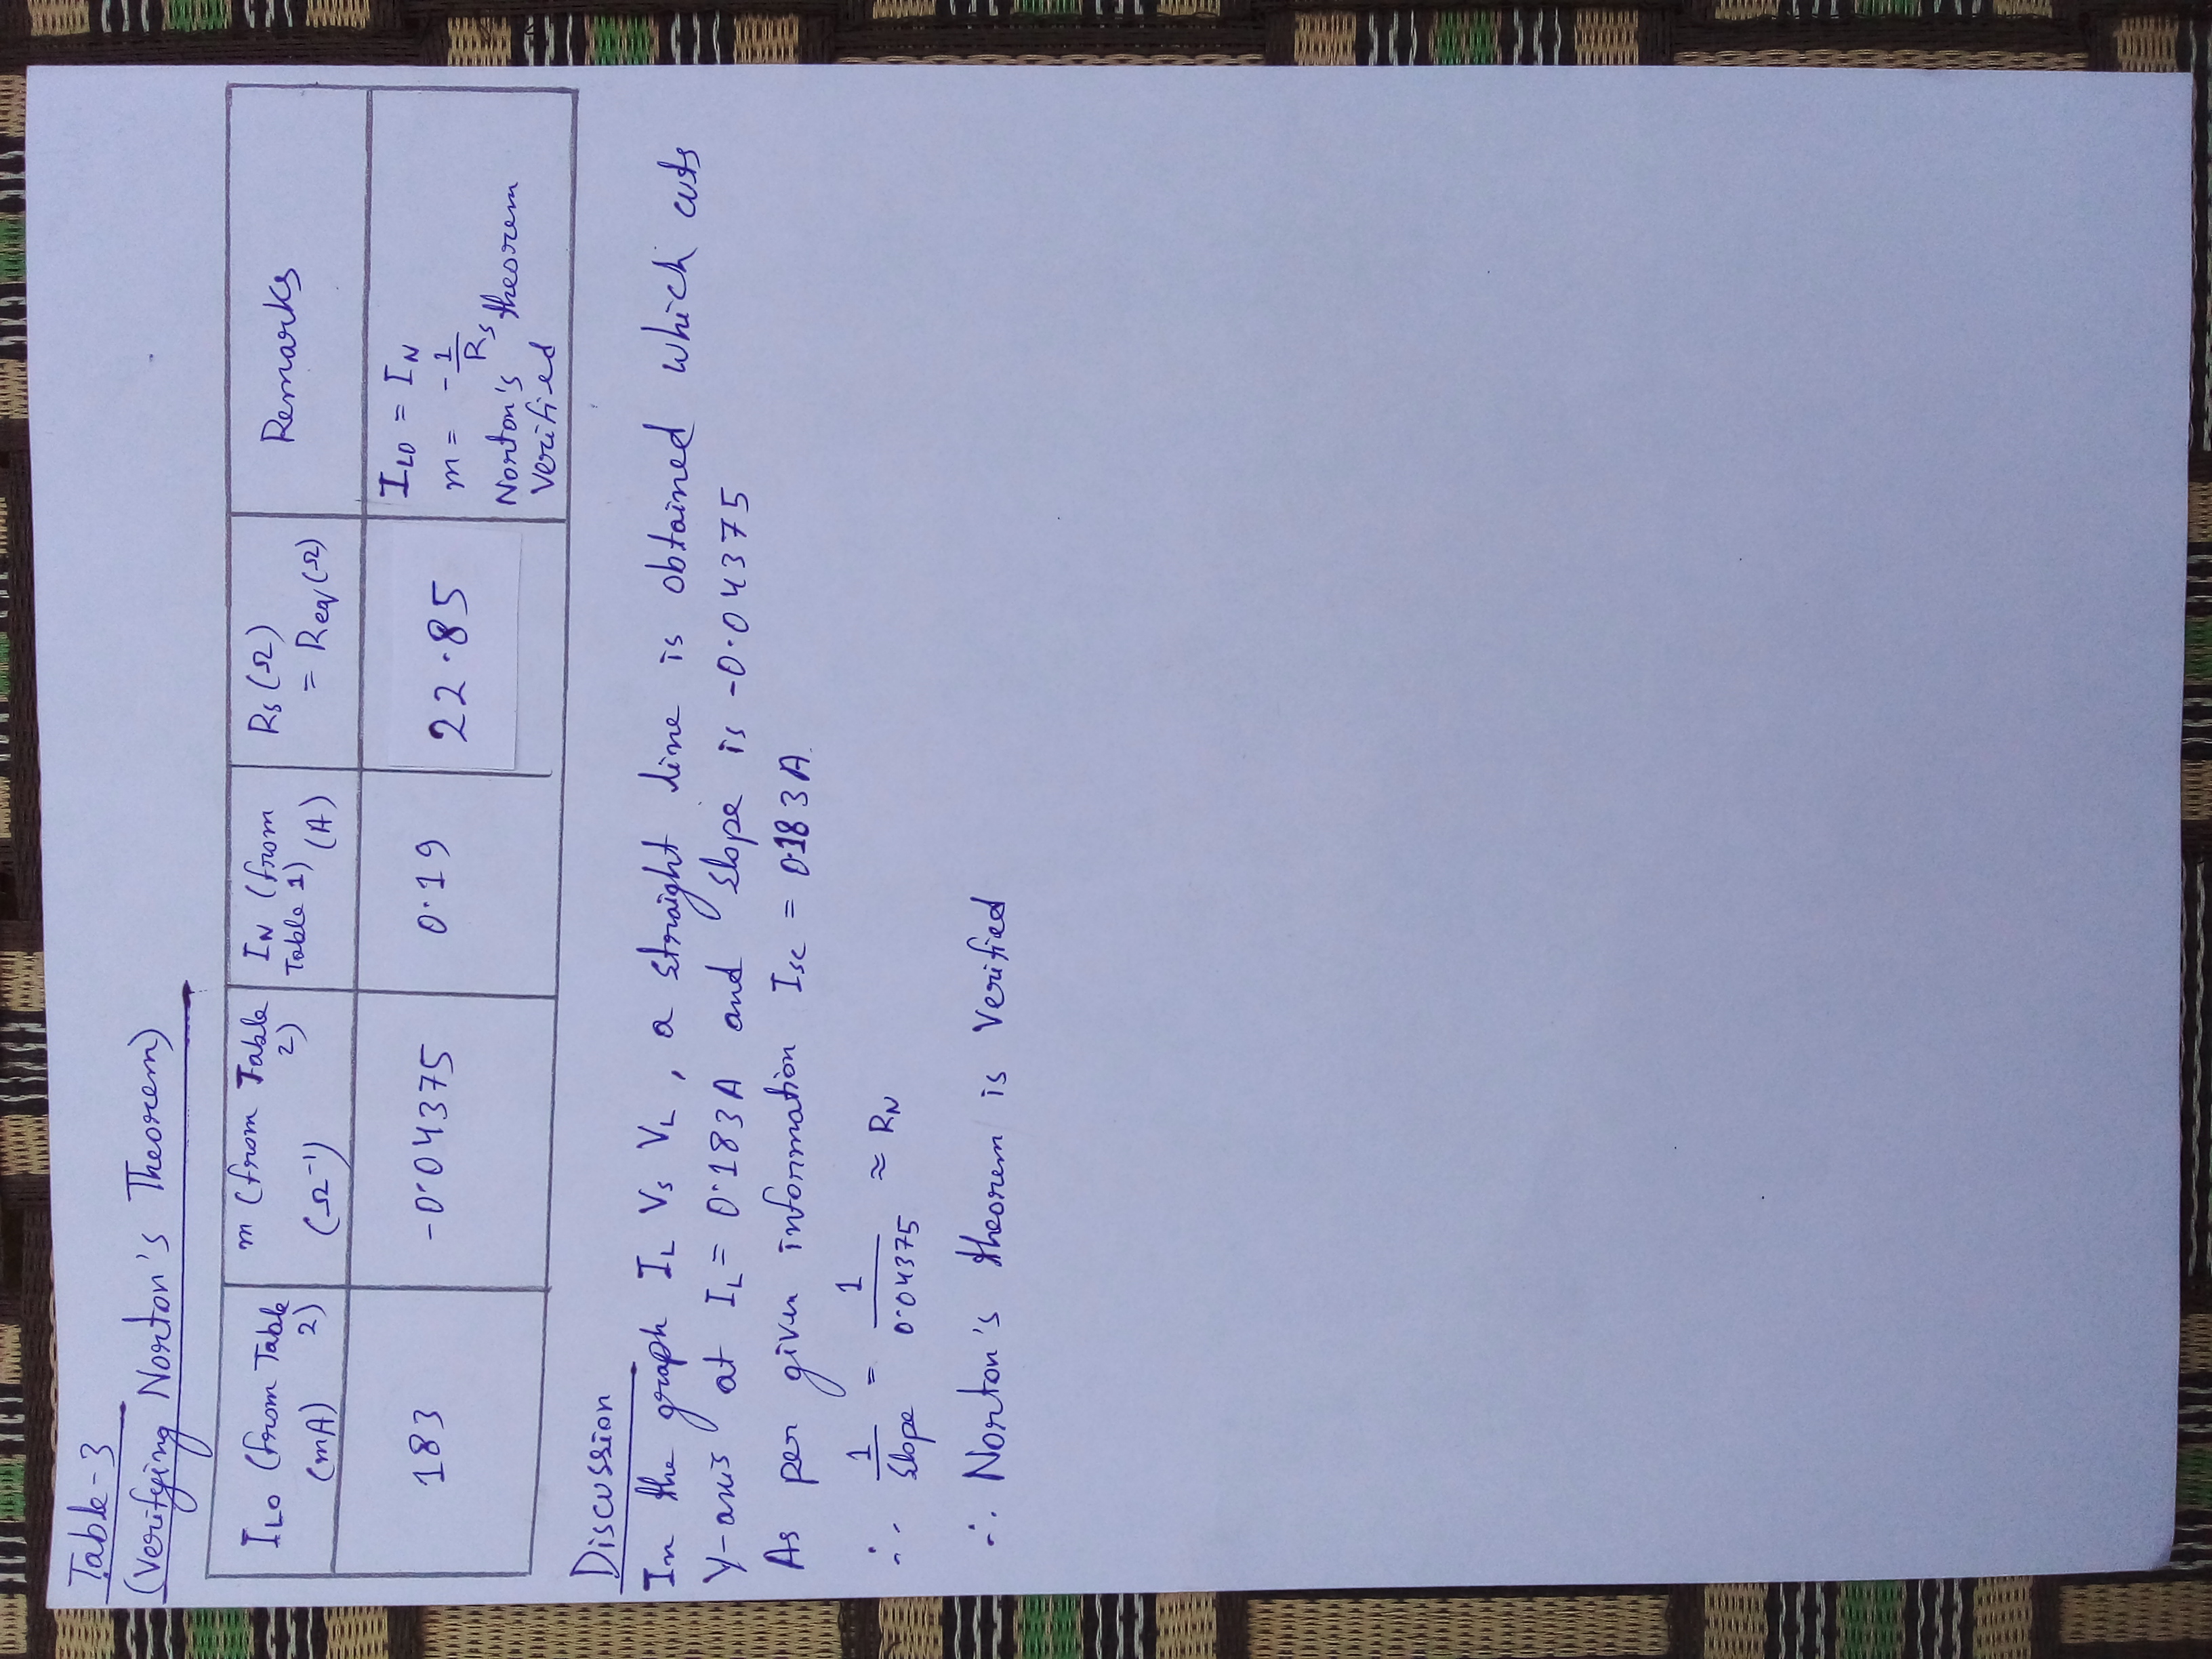 Table-3
(Verifying Norton's Theorem)
I_LO (from Table 2) (mA)
m (from Table 2) (Ω⁻¹)
I_N (from Table 1) (A)
R_S (Ω) = Req (Ω)
Remarks
183
-0.04375
0.19
22.85
I_LO = I_N
m = -1/R_S
Norton's theorem
Verified
Discussion
In the graph I_L Vs V_L, a straight line is obtained which cuts
Y-axis at I_L = 0.183A and slope is -0.04375
As per given information I_SC = 0.183A.
∴ 1/Slope = 1/0.04375 ≈ R_N
∴ Norton's theorem is Verified